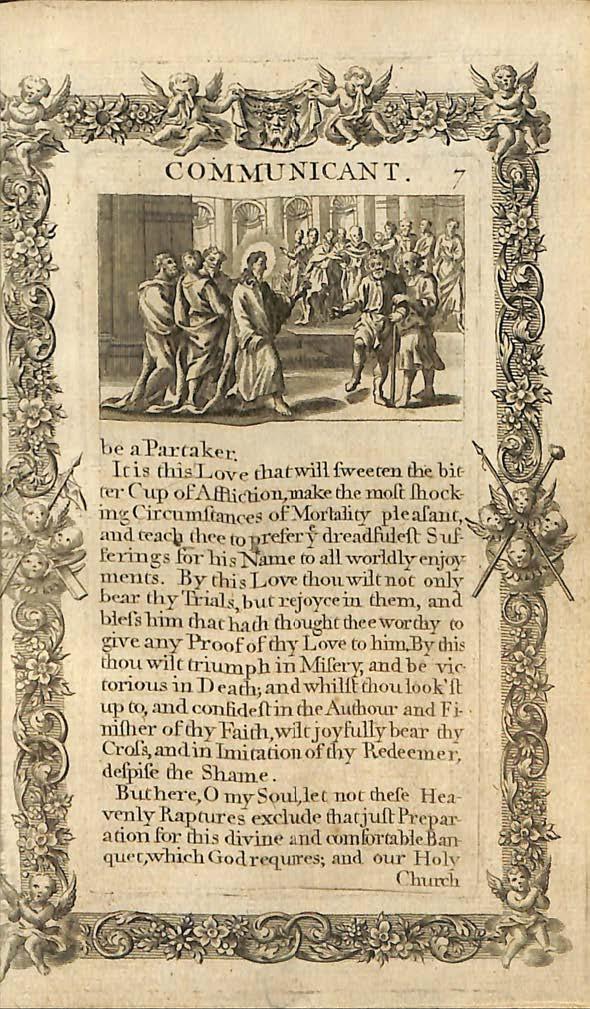 COMMUNICANT. 7
be a Partaker.
It is this Love that will ſweeten the bit-
ter Cup of Affliction, make the moſt ſhock-
ing Circumſtances of Mortality pleaſant,
and teach thee to prefer yͤ dreadfuleſt Suf-
ferings for his Name to all worldly enjoy
ments. By this Love thou wilt not only
bear thy Trials, but rejoyce in them, and
bleſs him that hath thought thee worthy to
give any Proof of thy Love to him. By this
thou wilt triumph in Miſery, and be vic-
torious in Death; and whilſt thou look'ſt
up to, and confideſt in the Authour and Fi-
niſher of thy Faith, wilt joyfully bear thy
Croſs, and in Imitation of thy Redeemer,
deſpiſe the Shame.
But here, O my Soul, let not theſe Hea-
venly Raptures exclude that juſt Prepar-
ation for this divine and comfortable Ban-
quet, which God requires; and our Holy
Church